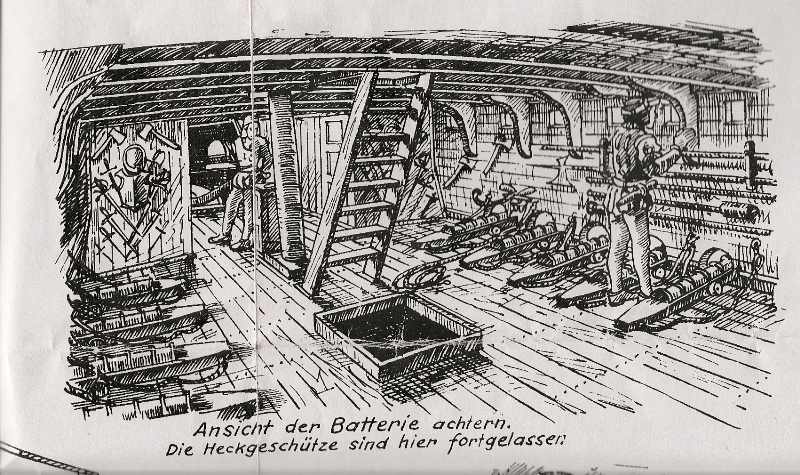 Ansicht der Batterie achtern.
Die Heckgeschütze sind hier fortgelassen